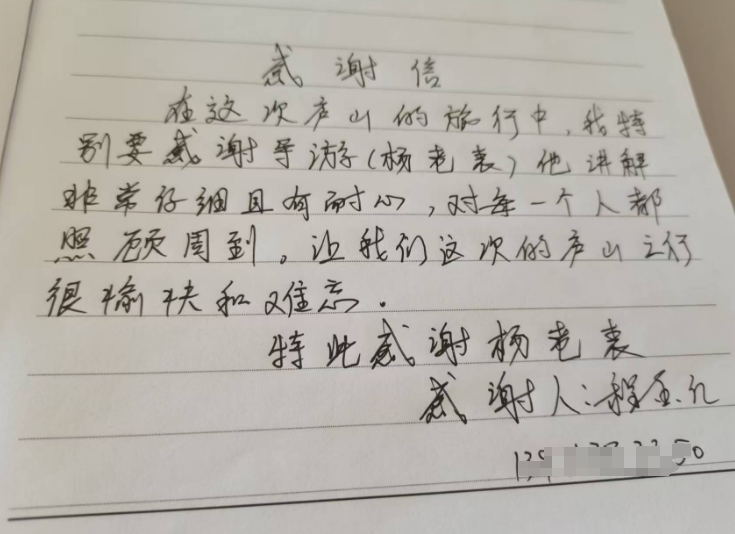 感谢信
在这次庐山的旅行中,我特
别要感谢导游(杨老表)他讲解
非常仔细且有耐心,对每一个人都
照顾周到。让我们这次的庐山之行
很愉快和难忘.
特此感谢杨老表
感谢人:程
139 50